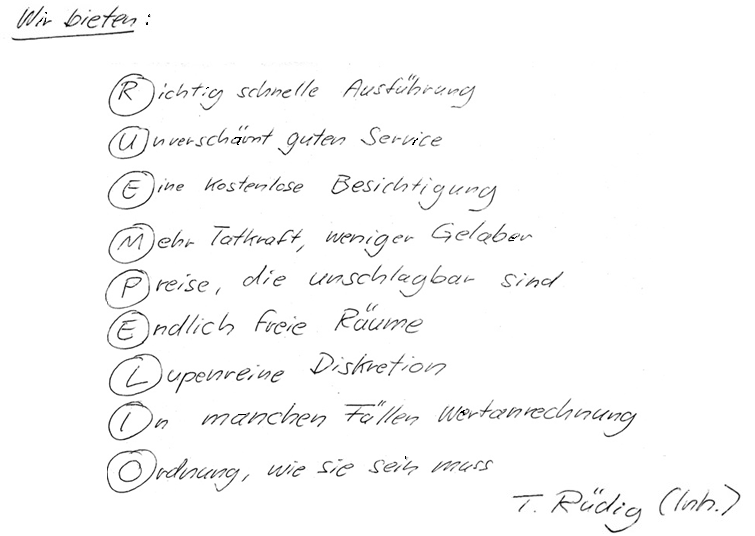 Wir bieten:
Richtig schnelle Ausführung
Unverschämt guten Service
Eine kostenlose Besichtigung
Mehr Tatkraft, weniger Gelaber
Preise, die unschlagbar sind
Endlich freie Räume
Lupenreine Diskretion
In manchen Fällen Wertanrechnung
Ordnung, wie sie sein muss
T. Rüdig (Inh.)